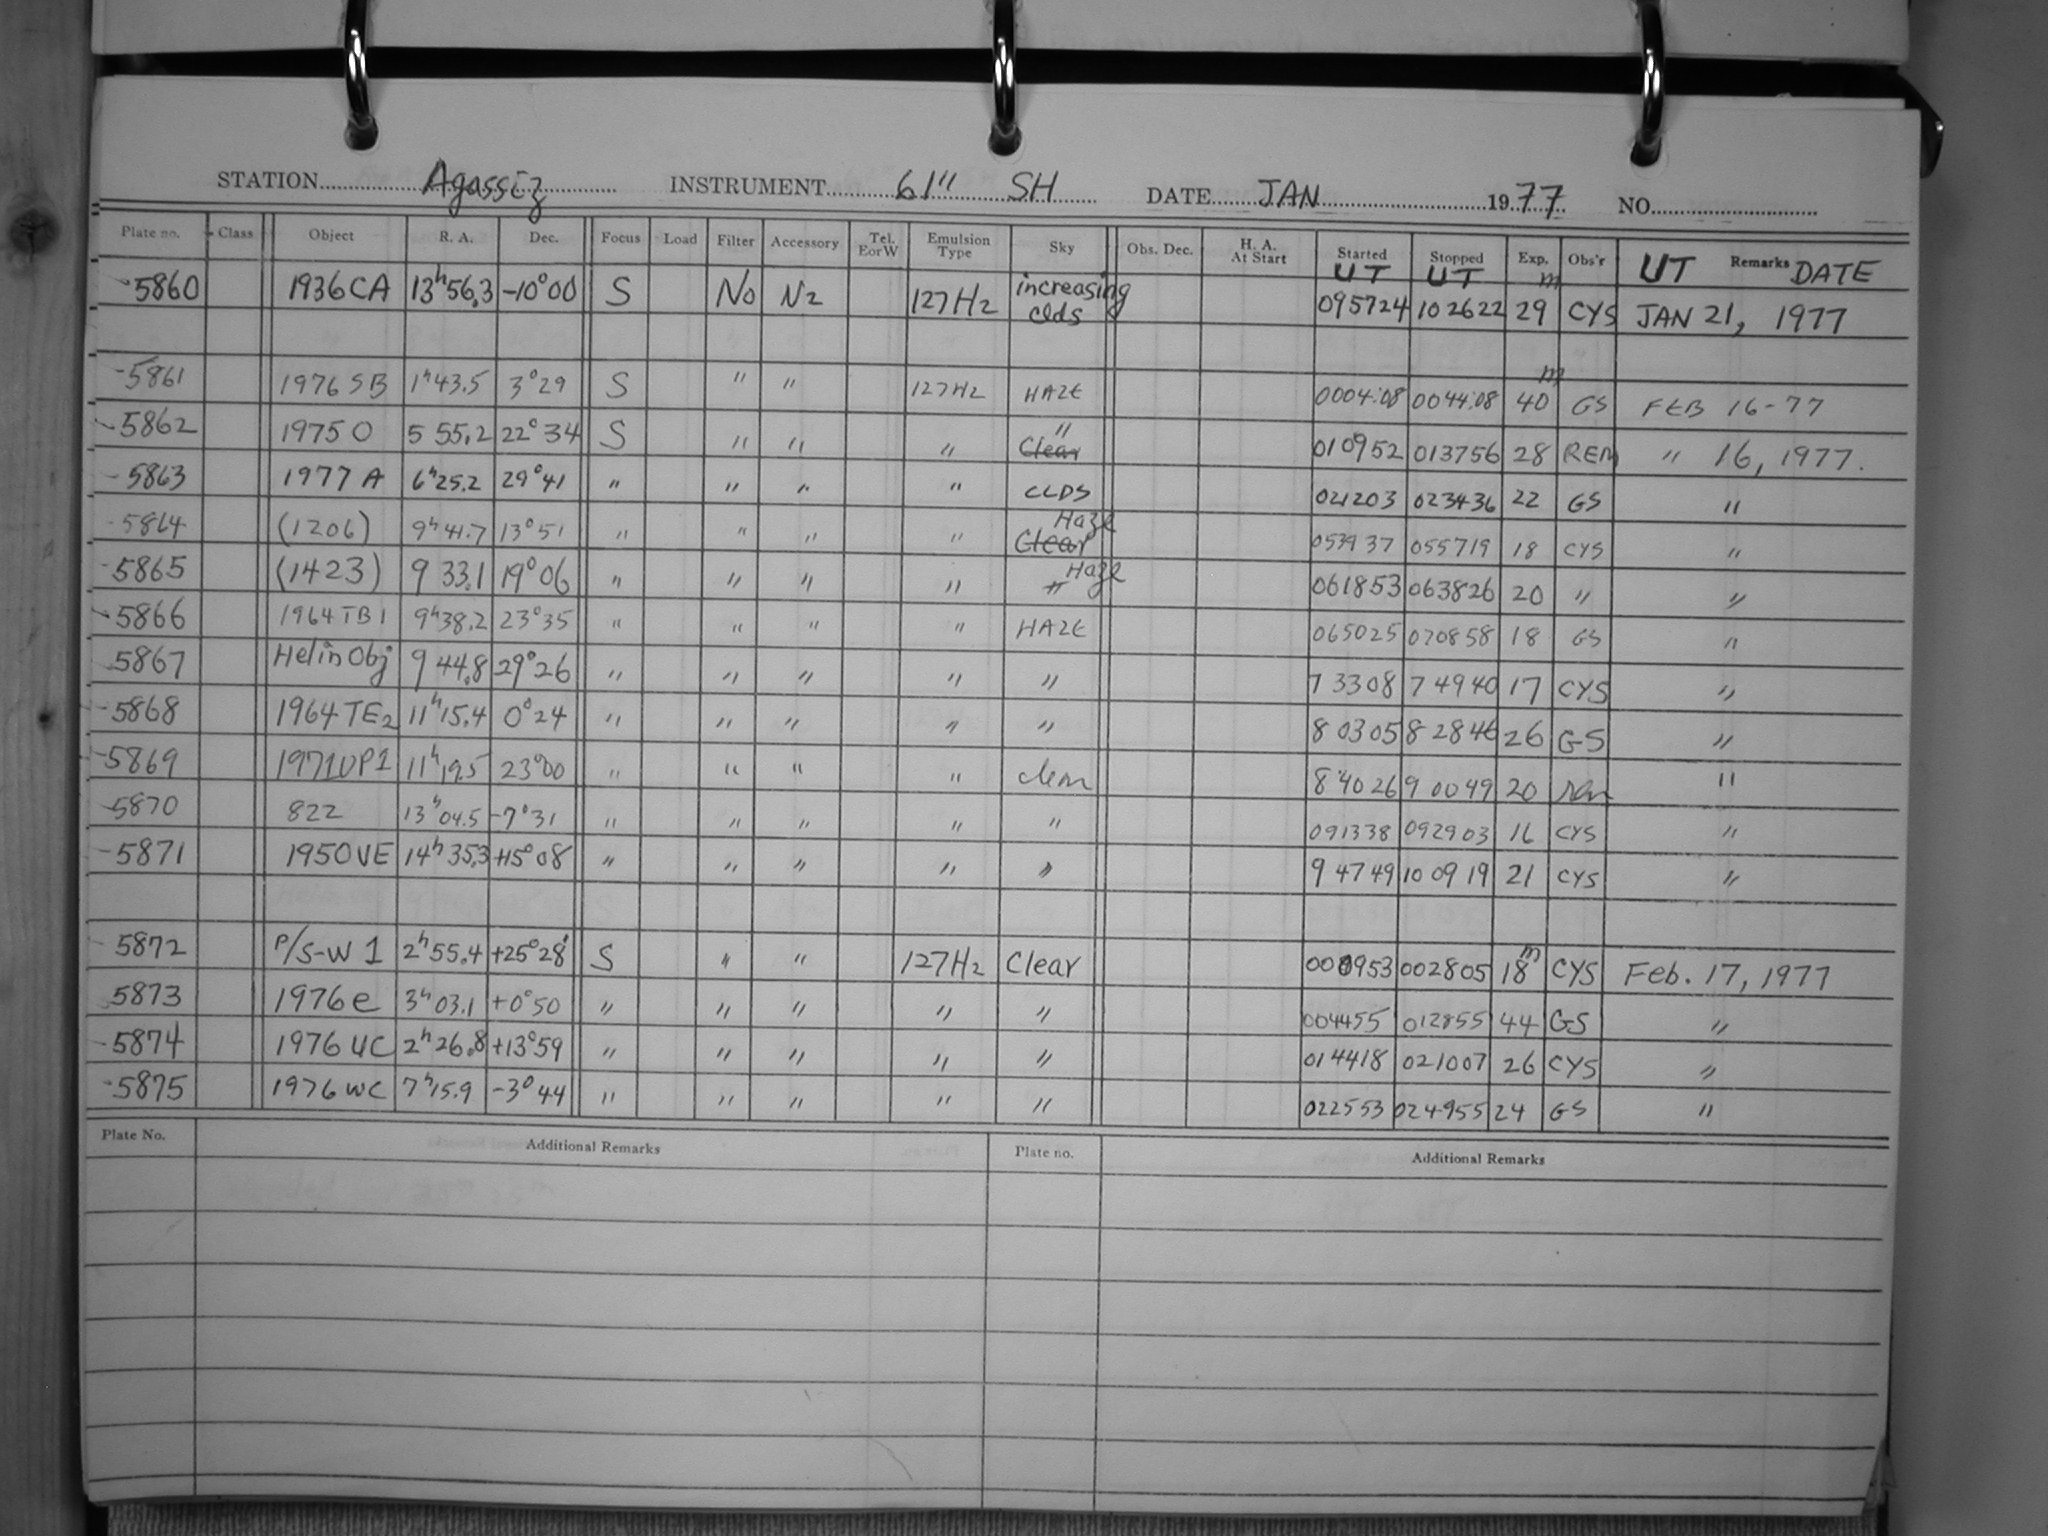 STATION Agassiz INSTRUMENT 61" SH DATE JAN 1977 NO.
Plate no. Class Object R. A. Dec. Focus Load Filter Accessory Tel. EorW Emulsion Type Sky Obs. Dec. H. A. At Start Started UT Stopped UT Exp. Obs'r UT Remarks DATE
-5860 1936 CA 13h56.3 -10°00 S No N2 127H2 increasing clds 095724 102622 29m CYS JAN 21, 1977
-5861 1976 SB 1h43.5 3°29 S " " 127H2 HAZE 0004:08 0044:08 40m GS FEB 16-77
-5862 1975 O 5 55.2 22°34 S " " " Clear " 010952 013756 28 REM " 16, 1977.
-5863 1977 A 6h25.2 29°41 " " " " CLDS 021203 023436 22 GS "
-5864 (1206) 9h41.7 13°51 " " " " Clear Haze 053937 055719 18 CYS "
-5865 (1423) 9 33.1 19°06 " " " " " Haze 061853 063826 20 " "
-5866 1964 TB1 9h38.2 23°35 " " " " HAZE 065025 070858 18 GS "
-5867 Helin Obj 9 44.8 29°26 " " " " " 7 3308 7 4940 17 CYS "
-5868 1964 TE2 11h15.4 0°24 " " " " " 8 0305 8 2846 26 GS "
-5869 1971UP1 11h19.5 23°00 " " " " clear 8 40 26 9 00 49 20 rem "
-5870 822 13h04.5 -7°31 " " " " " 091338 092903 16 CYS "
-5871 1950VE 14h35.3 +15°08 " " " " " 9 47 49 10 09 19 21 CYS "
-5872 P/S-W 1 2h55.4 +25°28' S " " 127H2 Clear 000953 002805 18m CYS Feb. 17, 1977
-5873 1976e 3h03.1 +0°50 " " " " " 004455 012855 44 GS "
-5874 1976 UC 2h26.8 +13°59 " " " " " 014418 021007 26 CYS "
-5875 1976 WC 7h15.9 -3°44 " " " " " 022553 024955 24 GS "
Plate No. Additional Remarks Plate no. Additional Remarks